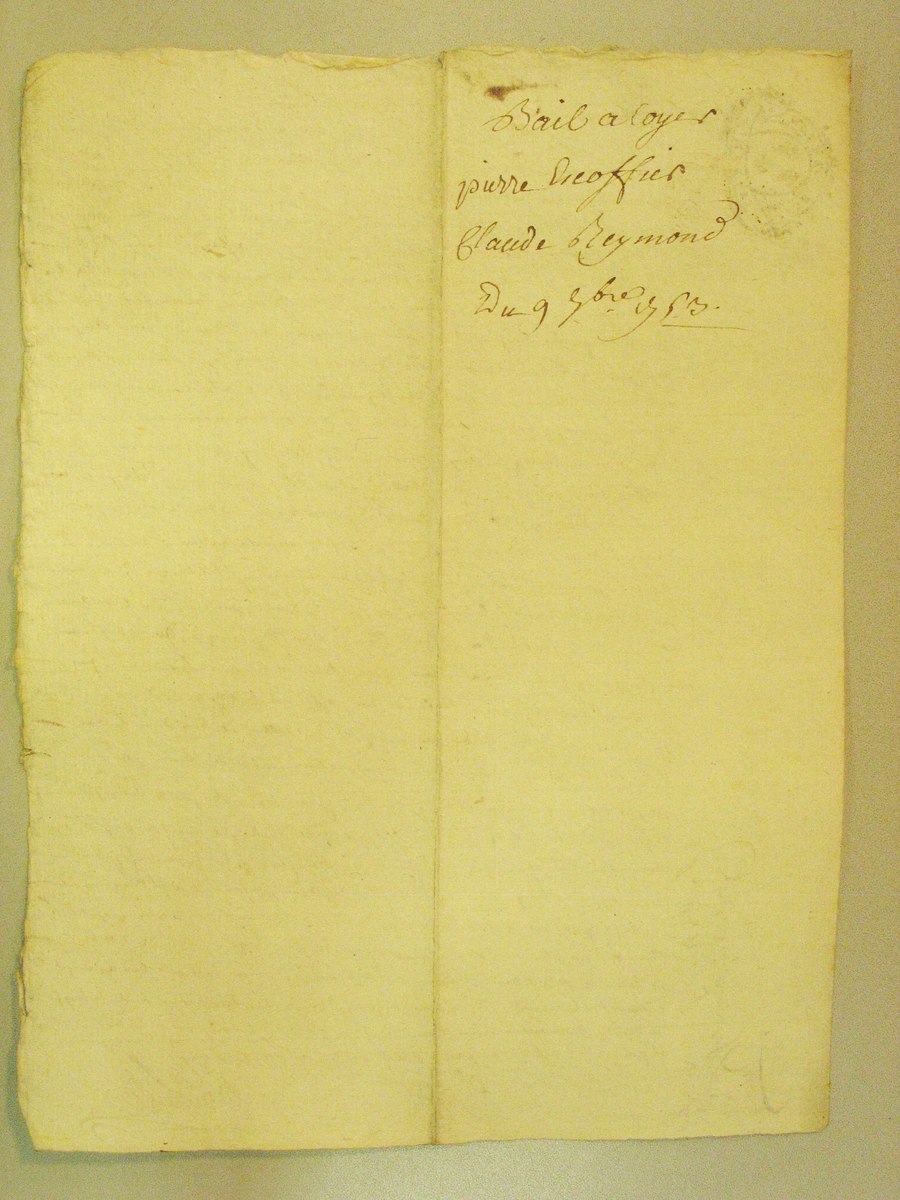 Bail a loyer
pierre Escoffier
Claude Reymond
Du 9 7bre 1753.